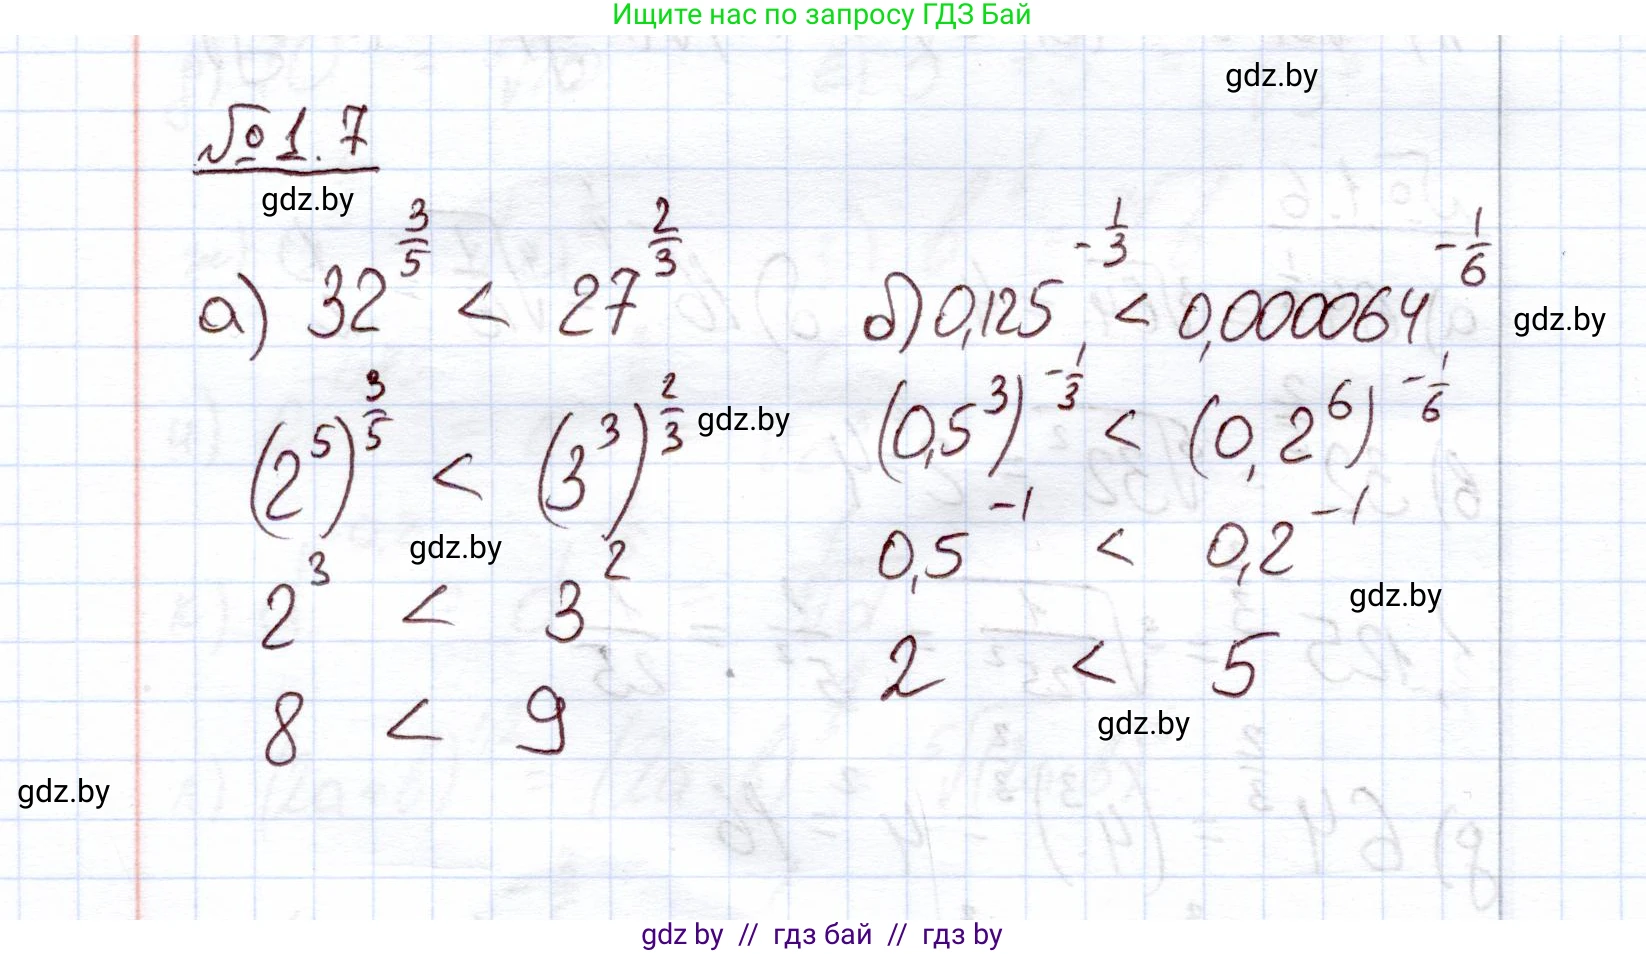 Ищите нас по запросу ГДЗ Бай
gdz.by
№ 1.7
gdz.by
а) 32^(3/5) < 27^(2/3)
(2^5)^(3/5) < (3^3)^(2/3)
gdz.by
gdz.by
2^3 < 3^2
8 < 9
б) 0,125^(-1/3) < 0,000064^(-1/6),
gdz.by
(0,5^3)^(-1/3) < (0,2^6)^(-1/6)
0,5^(-1) < 0,2^(-1)
gdz.by
2 < 5
gdz.by
gdz.by
gdz by // гдз бай // гдз by